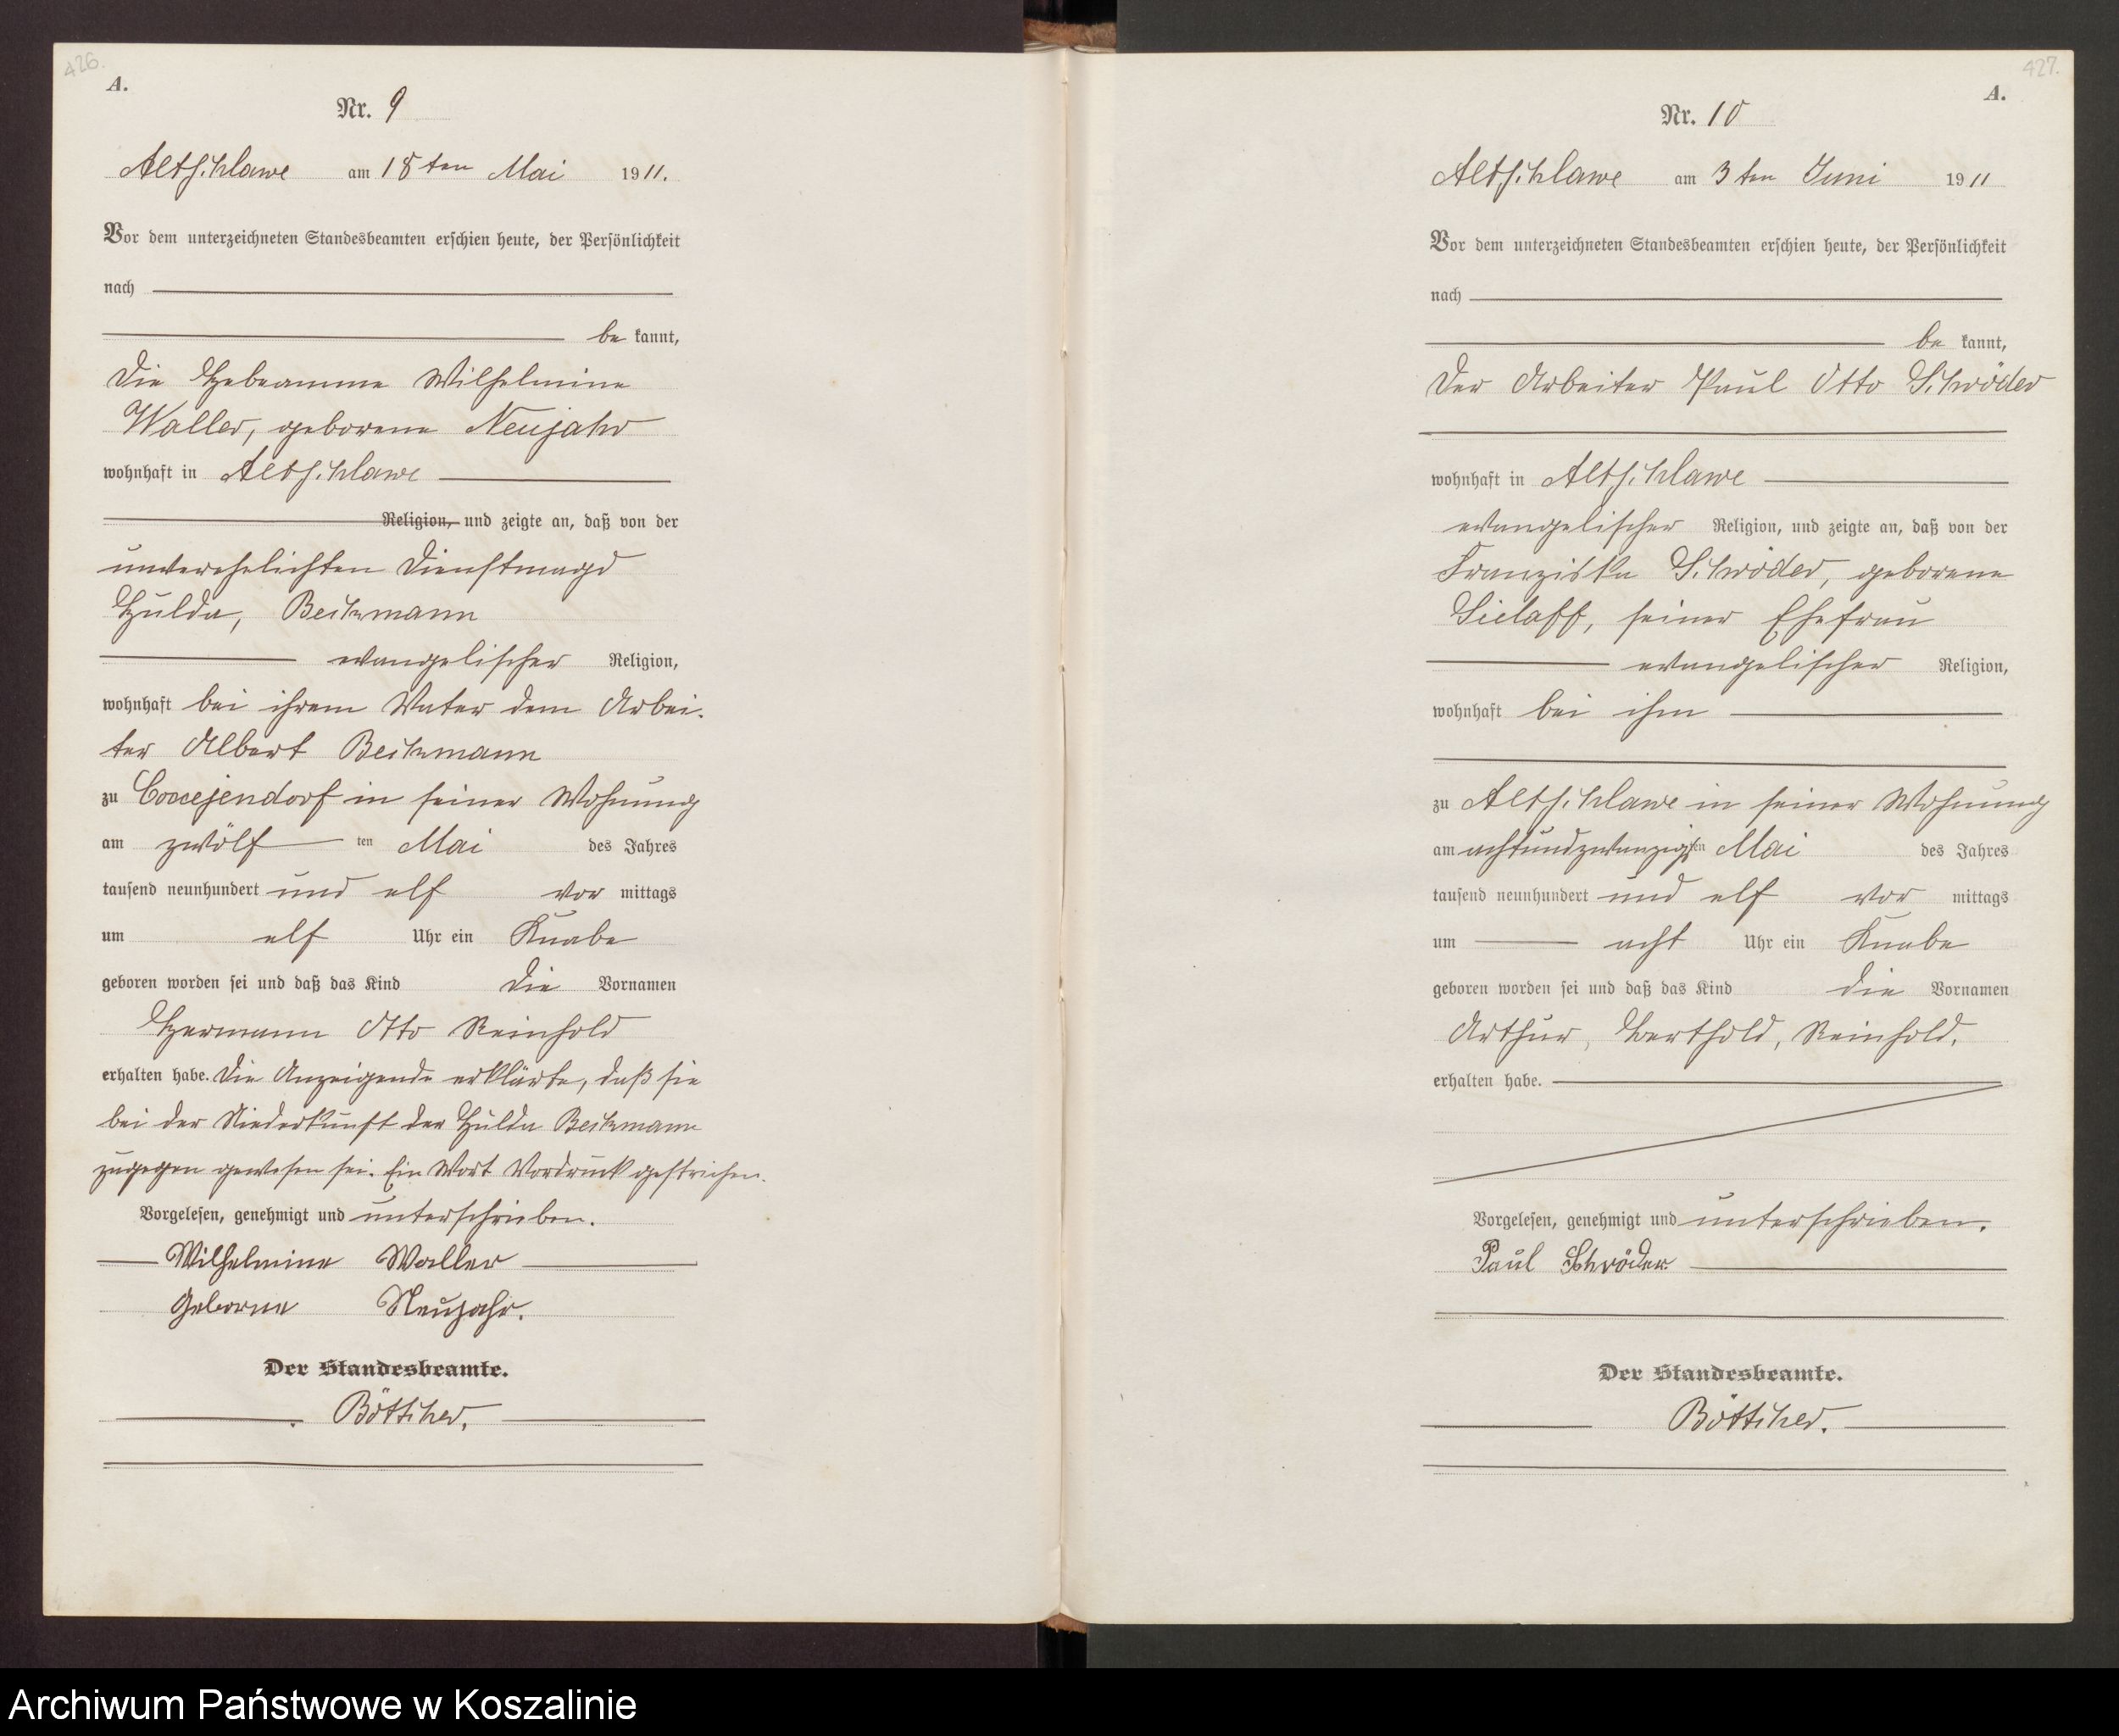 426.
A.
Nr. 9
Altschlawe am 18ten Mai 1911.
Vor dem unterzeichneten Standesbeamten erschien heute, der Persönlichkeit
nach
be kannt,
die Hebeamme Wilhelmine
Waller, geborene Neujahr
wohnhaft in Altschlawe
Religion, und zeigte an, daß von der
unverehelichten Dienstmagd
Hulda, Beckmann
evangelischer Religion,
wohnhaft bei ihrem Vater dem Arbei-
ter Albert Beckmann
zu Coccejendorf in seiner Wohnung
am zwölf ten Mai des Jahres
tausend neunhundert und elf vor mittags
um elf Uhr ein Knabe
geboren worden sei und daß das Kind die Vornamen
Hermann Otto Reinhold
erhalten habe. Die Anzeigende erklärte, daß sie
bei der Niederkunft der Hulda Beckmann
zugegen gewesen sei. Ein Wort Vordruck gestrichen.
Vorgelesen, genehmigt und unterschrieben.
Wilhelmine Waller
Geborne Neujahr.
Der Standesbeamte.
Böttcher.
427.
A.
Nr. 10
Altschlawe am 3ten Juni 1911
Vor dem unterzeichneten Standesbeamten erschien heute, der Persönlichkeit
nach
be kannt,
der Arbeiter Paul Otto Schröder
wohnhaft in Altschlawe
evangelischer Religion, und zeigte an, daß von der
Franziska Schröder, geborene
Sielaff, seiner Ehefrau
evangelischer Religion,
wohnhaft bei ihm
zu Altschlawe in seiner Wohnung
am achtundzwanzigsten Mai des Jahres
tausend neunhundert und elf vor mittags
um acht Uhr ein Knabe
geboren worden sei und daß das Kind die Vornamen
Arthur, Berthold, Reinhold.
erhalten habe.
Vorgelesen, genehmigt und unterschrieben.
Paul Schröder
Der Standesbeamte.
Böttcher.
Archiwum Państwowe w Koszalinie